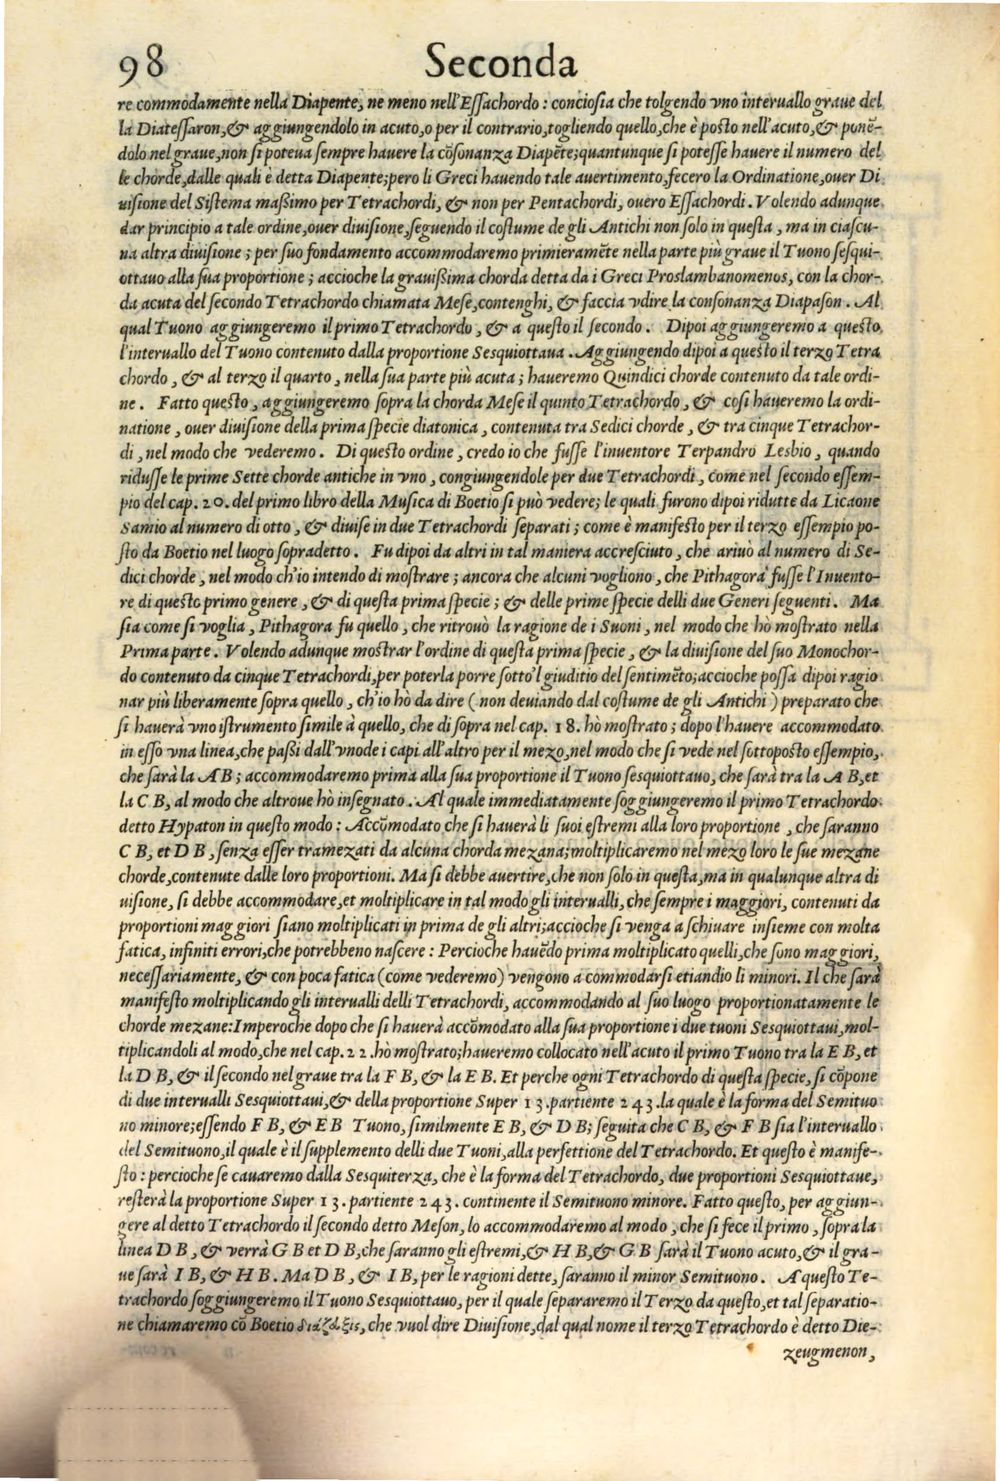 98 Seconda
re commodamente nella Diapente, ne meno nell'Eſſachordo: concioſia che tolgendo vno interuallo graue del
la Diateſſaron, & aggiungendolo in acuto, o per il contrario, togliendo quello, che è poſto nell'acuto, & ponē-
dolo nel graue, non ſi poteua ſempre hauere la cōſonanza Diapēte; quantunque ſi poteſſe hauere il numero del
le chorde, dalle quali è detta Diapente; pero li Greci hauendo tale auertimento, fecero la Ordinatione, ouer Di
uiſione del Siſtema maßimo per Tetrachordi, & non per Pentachordi, ouero Eſſachordi. Volendo adunque
dar principio a tale ordine, ouer diuiſione, ſeguendo il coſtume de gli Antichi non ſolo in queſta, ma in ciaſcu-
na altra diuiſione; per ſuo fondamento accommodaremo primieramēte nella parte più graue il Tuono ſeſqui-
ottauo alla ſua proportione; accioche la grauißima chorda detta da i Greci Proslambanomenos, con la chor-
da acuta del ſecondo Tetrachordo chiamata Meſe, contenghi, & faccia vdire la conſonanza Diapaſon. Al
qual Tuono aggiungeremo il primo Tetrachordo, & a queſto il ſecondo. Dipoi aggiungeremo a queſto
l'interuallo del Tuono contenuto dalla proportione Sesquiottaua. Aggiungendo dipoi a queſto il terzo Tetra
chordo, & al terzo il quarto, nella ſua parte più acuta; haueremo Quindici chorde contenuto da tale ordi-
ne. Fatto queſto, aggiungeremo ſopra la chorda Meſe il quinto Tetrachordo, & coſi haueremo la ordi-
natione, ouer diuiſione della prima ſpecie diatonica, contenuta tra Sedici chorde, & tra cinque Tetrachor-
di, nel modo che vederemo. Di queſto ordine, credo io che fuſſe l'inuentore Terpandro Lesbio, quando
riduſſe le prime Sette chorde antiche in vno, congiungendole per due Tetrachordi, come nel ſecondo eſſem-
pio del cap. 20. del primo libro della Muſica di Boetio ſi può vedere; le quali furono dipoi ridutte da Licaone
Samio al numero di otto, & diuiſe in due Tetrachordi ſeparati; come è manifeſto per il terzo eſſempio po-
ſto da Boetio nel luogo ſopradetto. Fu dipoi da altri in tal maniera accreſciuto, che ariuò al numero di Se-
dici chorde, nel modo ch'io intendo di moſtrare; ancora che alcuni vogliono, che Pithagora fuſſe l'Inuento-
re di queſto primo genere, & di queſta prima ſpecie; & delle prime ſpecie delli due Generi ſeguenti. Ma
ſia come ſi voglia, Pithagora fu quello, che ritrouò la ragione de i Suoni, nel modo che hò moſtrato nella
Prima parte. Volendo adunque moſtrar l'ordine di queſta prima ſpecie, & la diuiſione del ſuo Monochor-
do contenuto da cinque Tetrachordi, per poterla porre ſotto'l giuditio del ſentimēto; accioche poſſa dipoi ragio
nar più liberamente ſopra quello, ch'io hò da dire (non deuiando dal coſtume de gli Antichi) preparato che
ſi hauerà vno iſtrumento ſimile à quello, che di ſopra nel cap. 18. hò moſtrato; dopo l'hauere accommodato
in eſſo vna linea, che paßi dall'vno de i capi all'altro per il mezo, nel modo che ſi vede nel ſottopoſto eſſempio,
che ſarà la A B; accommodaremo prima alla ſua proportione il Tuono ſesquiottauo, che ſarà tra la A B, et
la C B, al modo che altroue hò inſegnato. Al quale immediatamente ſoggiungeremo il primo Tetrachordo
detto Hypaton in queſto modo: Accōmodato che ſi hauerà li ſuoi eſtremi alla loro proportione, che ſaranno
C B, et D B, ſenza eſſer tramezati da alcuna chorda mezana; moltiplicaremo nel mezo loro le ſue mezane
chorde, contenute dalle loro proportioni. Ma ſi debbe auertire, che non ſolo in queſta, ma in qualunque altra di
uiſione, ſi debbe accommodare, et moltiplicare in tal modo gli interualli, che ſempre i maggiori, contenuti da
proportioni maggiori ſiano moltiplicati in prima de gli altri; accioche ſi venga a ſchiuare inſieme con molta
fatica, infiniti errori, che potrebbeno naſcere: Percioche hauēdo prima moltiplicato quelli, che ſono maggiori,
neceſſariamente, & con poca fatica (come vederemo) vengono a commodarſi etiandio li minori. Il che ſarà
manifeſto moltiplicando gli interualli delli Tetrachordi, accommodando al ſuo luogo proportionatamente le
chorde mezane: Imperoche dopo che ſi hauerà accōmodato alla ſua proportione i due tuoni Sesquiottaui, mol-
tiplicandoli al modo, che nel cap. 22. hò moſtrato; haueremo collocato nell'acuto il primo Tuono tra la E B, et
la D B, & il ſecondo nel graue tra la F B, & la E B. Et perche ogni Tetrachordo di queſta ſpecie, ſi cōpone
di due interualli Sesquiottaui, & della proportione Super 13. partiente 243. la quale è la forma del Semituo
no minore; eſſendo F B, & E B Tuono, ſimilmente E B, & D B; ſeguita che C B, & F B ſia l'interuallo
del Semituono, il quale è il ſupplemento delli due Tuoni, alla perfettione del Tetrachordo. Et queſto è manife-
ſto: percioche ſe cauaremo dalla Sesquiterza, che è la forma del Tetrachordo, due proportioni Sesquiottaue,
reſterà la proportione Super 13. partiente 243. continente il Semituono minore. Fatto queſto, per aggiun-
gere al detto Tetrachordo il ſecondo detto Meſon, lo accommodaremo al modo, che ſi fece il primo, ſopra la
linea D B, & verrà G B et D B, che ſaranno gli eſtremi, & H B, & G B ſarà il Tuono acuto, & il gra-
ue ſarà I B, & H B. Ma D B, & I B, per le ragioni dette, ſaranno il minor Semituono. A queſto Te-
trachordo ſoggiungeremo il Tuono Sesquiottauo, per il quale ſepararemo il Terzo da queſto, et tal ſeparatio-
ne chiamaremo cō Boetio διάζευξις, che vuol dire Diuiſione, dal qual nome il terzo Tetrachordo è detto Die-
zeugmenon,